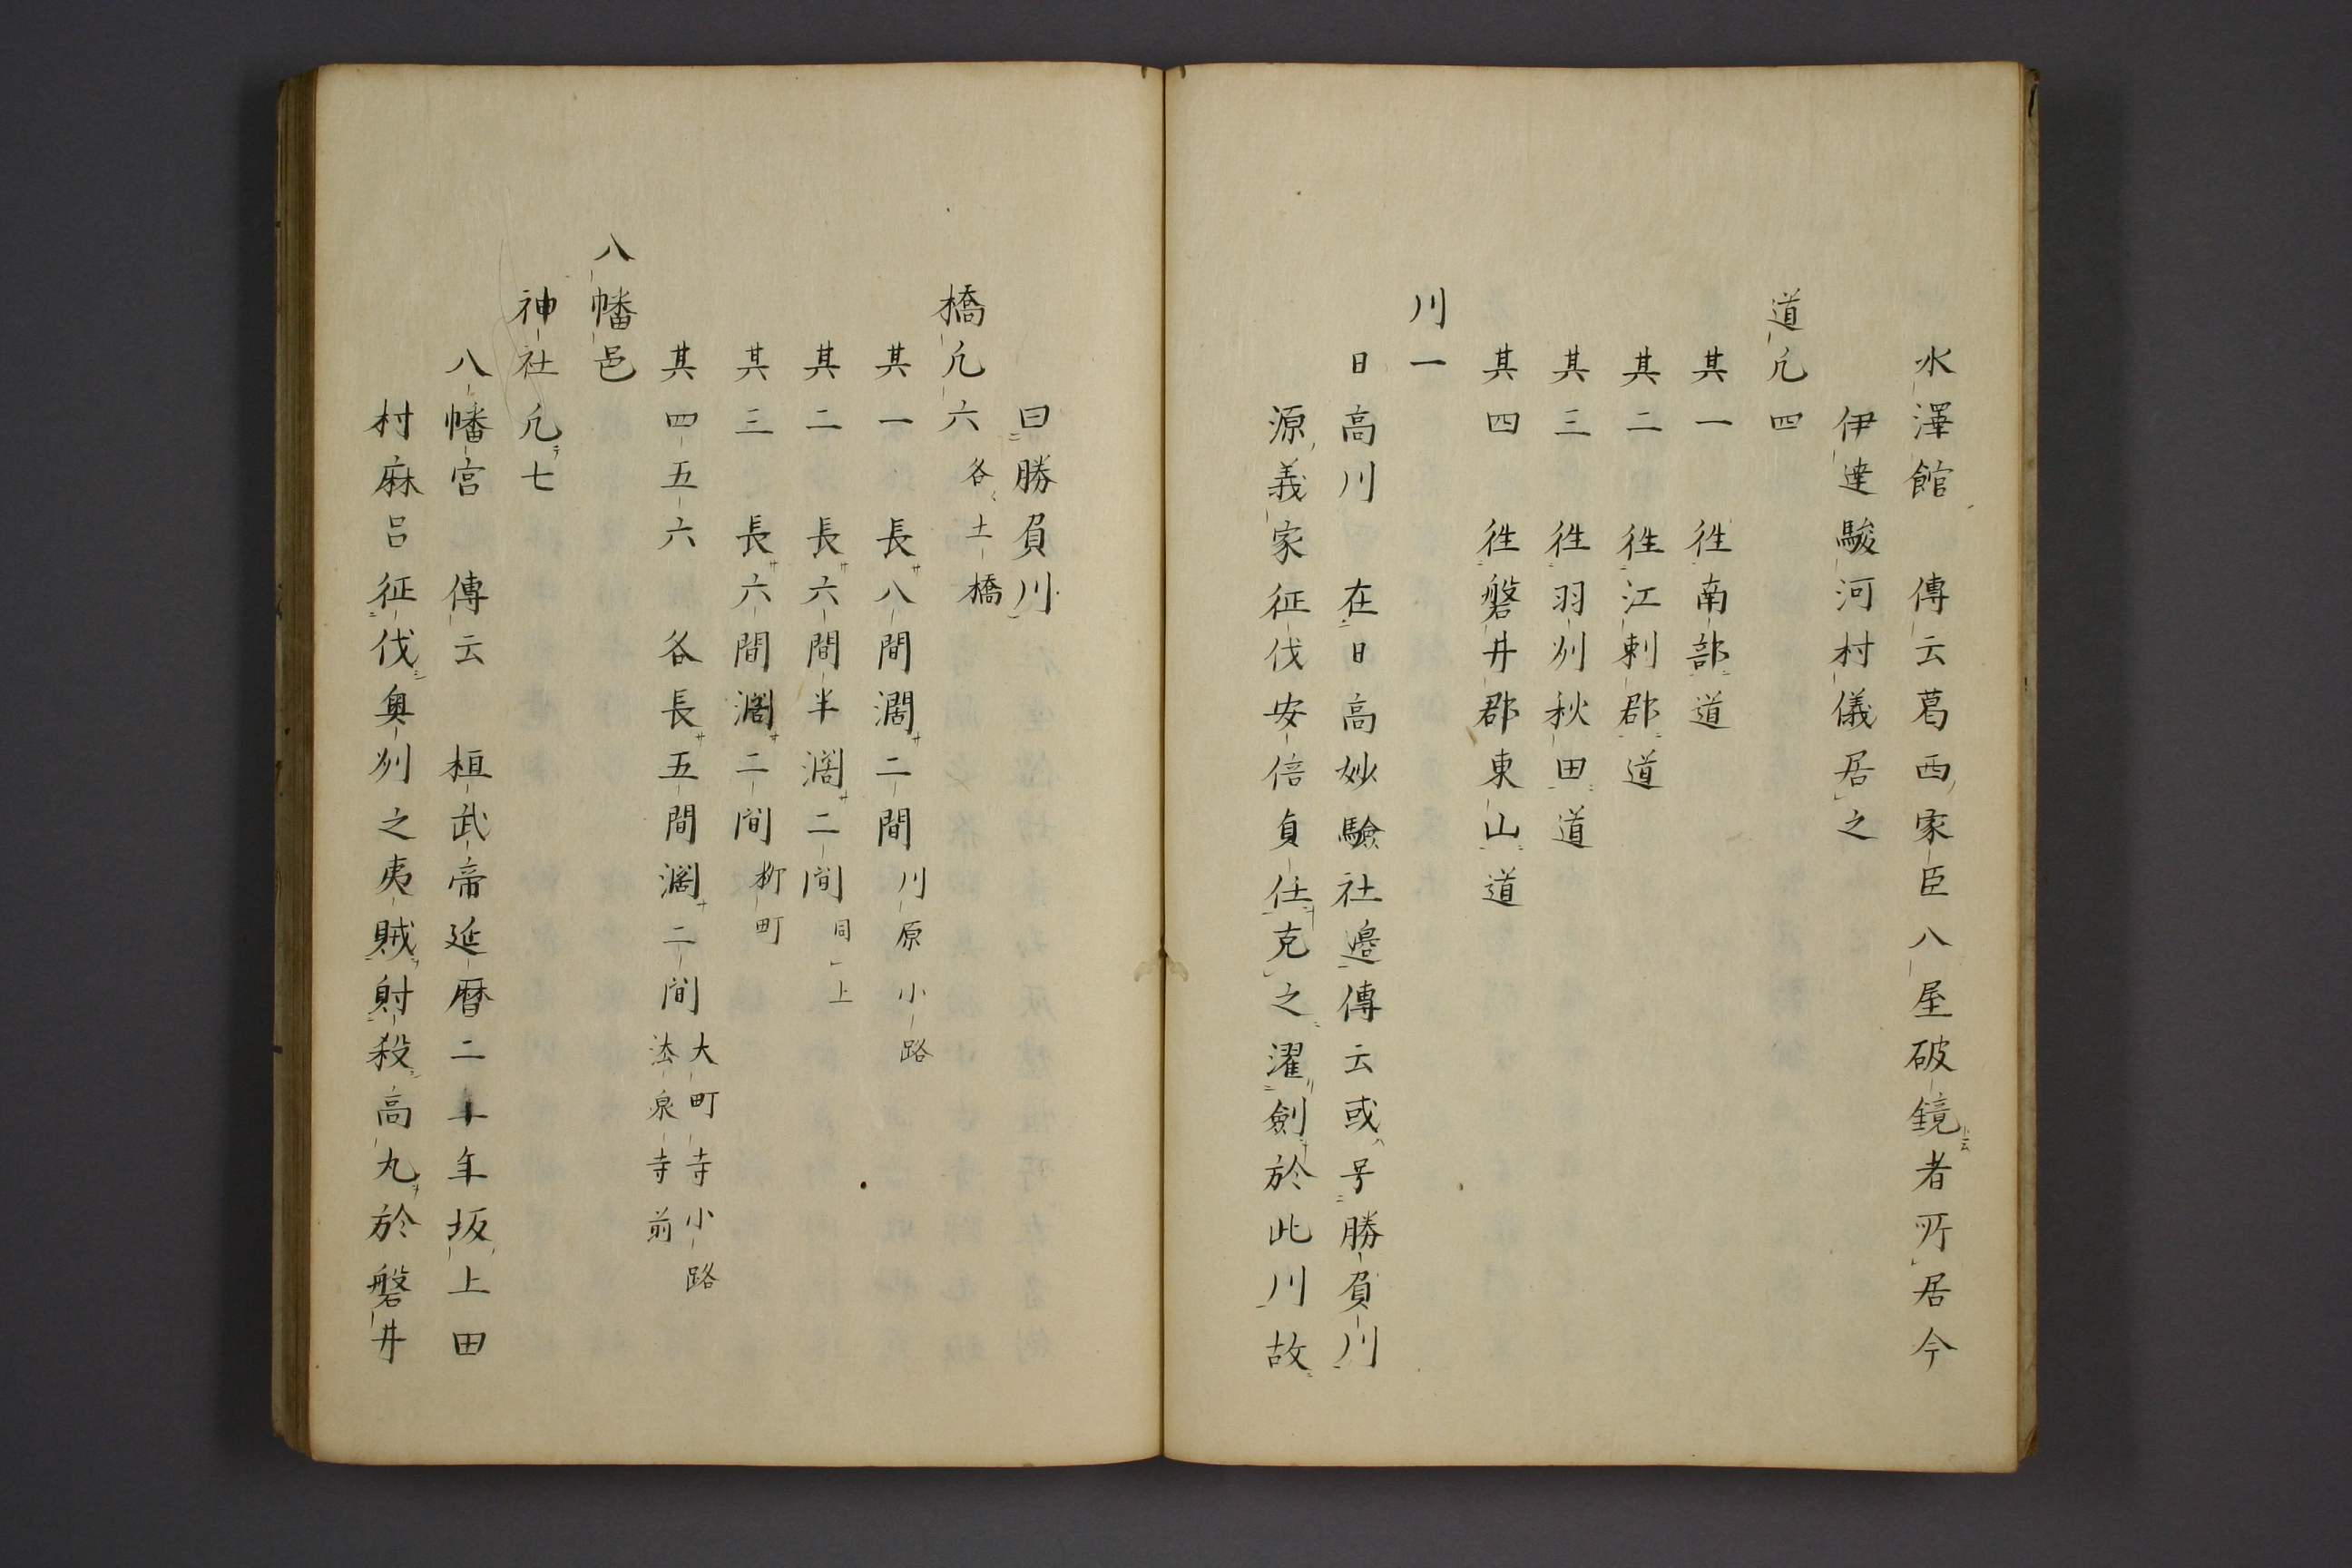 水澤館　傳云葛西家臣八屋破鏡者所居今
伊達駿河村儀居之
道凢四
其一　徃南部道
其二　徃江刺郡道
其三　徃羽刕秋田道
其四　徃磐井郡東山道
川一
日高川　在日高妙驗社邉傳云或号勝負川
源義家征伐安倍貞任克之濯劍於此川故
曰勝負川
橋凢六　各土橋
其一　長八間濶二間　川原小路
其二　長六間半濶二間　同上
其三　長六間濶二間　柳町
其四五六　各長五間濶二間　大町寺小路
法泉寺寺前
八幡邑
神社凢七
八幡宮　傳云　桓武帝延暦二十年坂上田
村麻呂征伐奥刕之夷賊射殺高丸於磐井